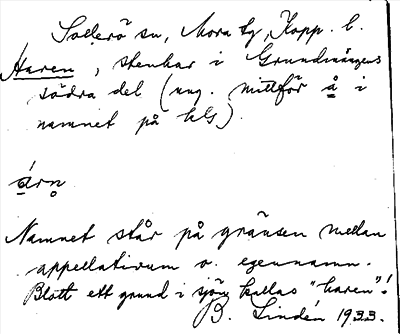 Sollerö sn, Mora tg, Kopp. l.
Haren, stenhar i Grundmångens
södra del (ung. mittför å i
namnet på kls).
árn̥
Namnet står på gränsen mellan
appellativum o. egennamn.
Blott ett grund i sjön kallas "haren"!
B. Lindén 1933.